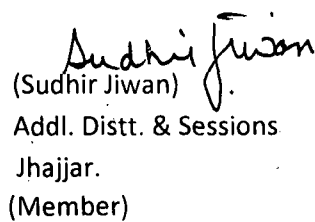 Sudhir Jiwan
(Sudhir Jiwan)
Addl. Distt. & Sessions
Jhajjar.
(Member)